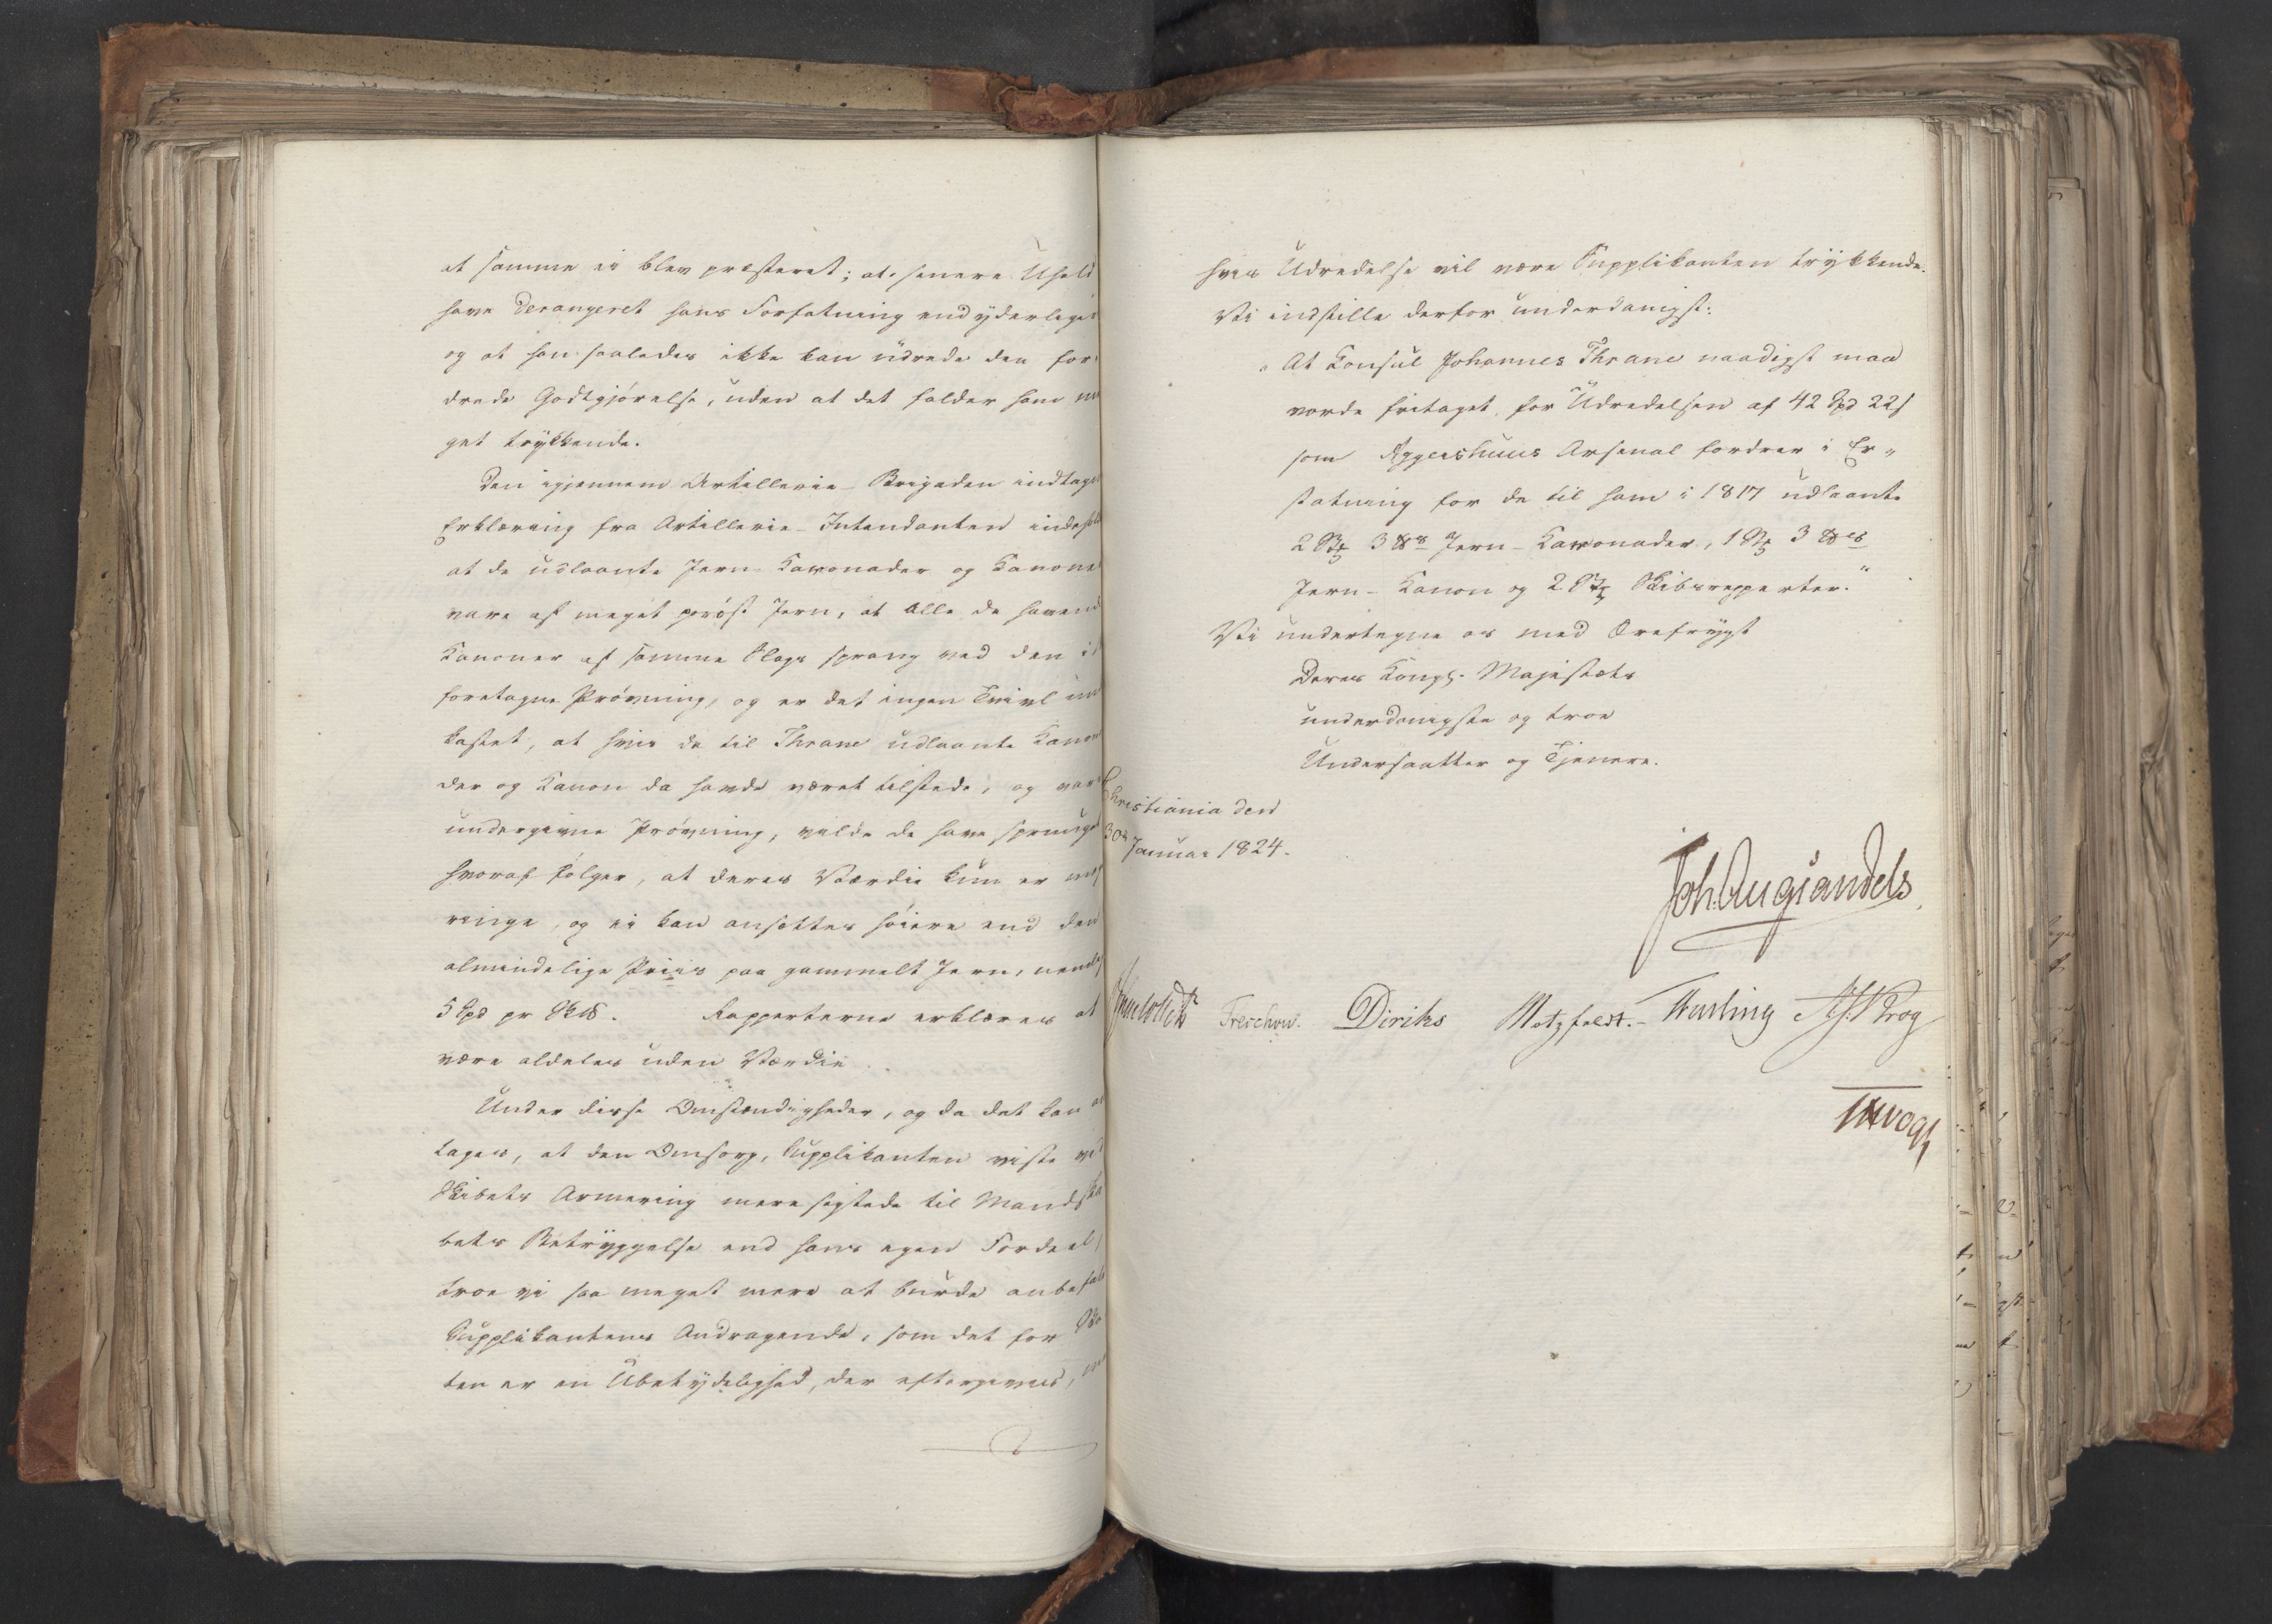 at samme ei blev præsteret; at senere Uheld
have derangeret hans Forfatning end yderligere
og at han saaledes ikke kan udrede den for¬
drede Godtgjørelse, uden at det falder ham me
get trykkende.
Den igjennem Artillerie-Brigaden indtagne
Erklæring fra Artillerie-Intendanten indeholder
at de udlaante Jern-Karonader og Kanoner
vare af meget porøst Jern, at alle de havende
Kanoner af samme Slags sprang ved den i
foretagne Prøvning, og er det ingen Tvivl un
kastet, at hvis de til Thrane udlaante Karona
der og Kanon da havde været tilstede, og vare
undergivne Prøvning, vilde de have sprunget
hvoraf følger, at deres Værdie kun er
ringe, og ei kan ansættes høiere end den
almindelige Priis paa gammelt Jern, nemlig
5 Spd pr Sk℔. Rapperterne erklæres at
være aldeles uden Værdie.
Under disse Omstændigheder, og da det kan an
tages, at den Omsorg, Supplikanten viste ved
Skibets Armering mere sigtede til Mandska
bets Betryggelse end hans egen Fordeel,
troe vi saa meget mere at burde anbefale
Supplikantens Andragende, som det for Sta
ten er en Ubetydelighed, der eftergives, men
hvis Udredelse vil være Supplikanten trykkende.
Vi indstille derfor underdanigst:
"At Konsul Johannes Thrane naadigst maa
vorde fritaget for Udredelsen af 42 Spd 22 s
som Aggershuus Arsenal fordrer i Er¬
statning for de til ham i 1817 udlaante
2 Stk 3 ℔s Jern-Karonader, 1 Stk 3 ℔es
Jern-Kanon og 2 Stk Skibsrapperter."
Vi undertegne os med Ærefrygt
Deres Kongl. Majestæts
underdanigste og troe
Undersaatter og Tjenere.
Christiania den
30te Januar 1824.
Joh. Aug Sandels
Treschow. Diriks Motzfeldt. Fasting Krog
Vogt